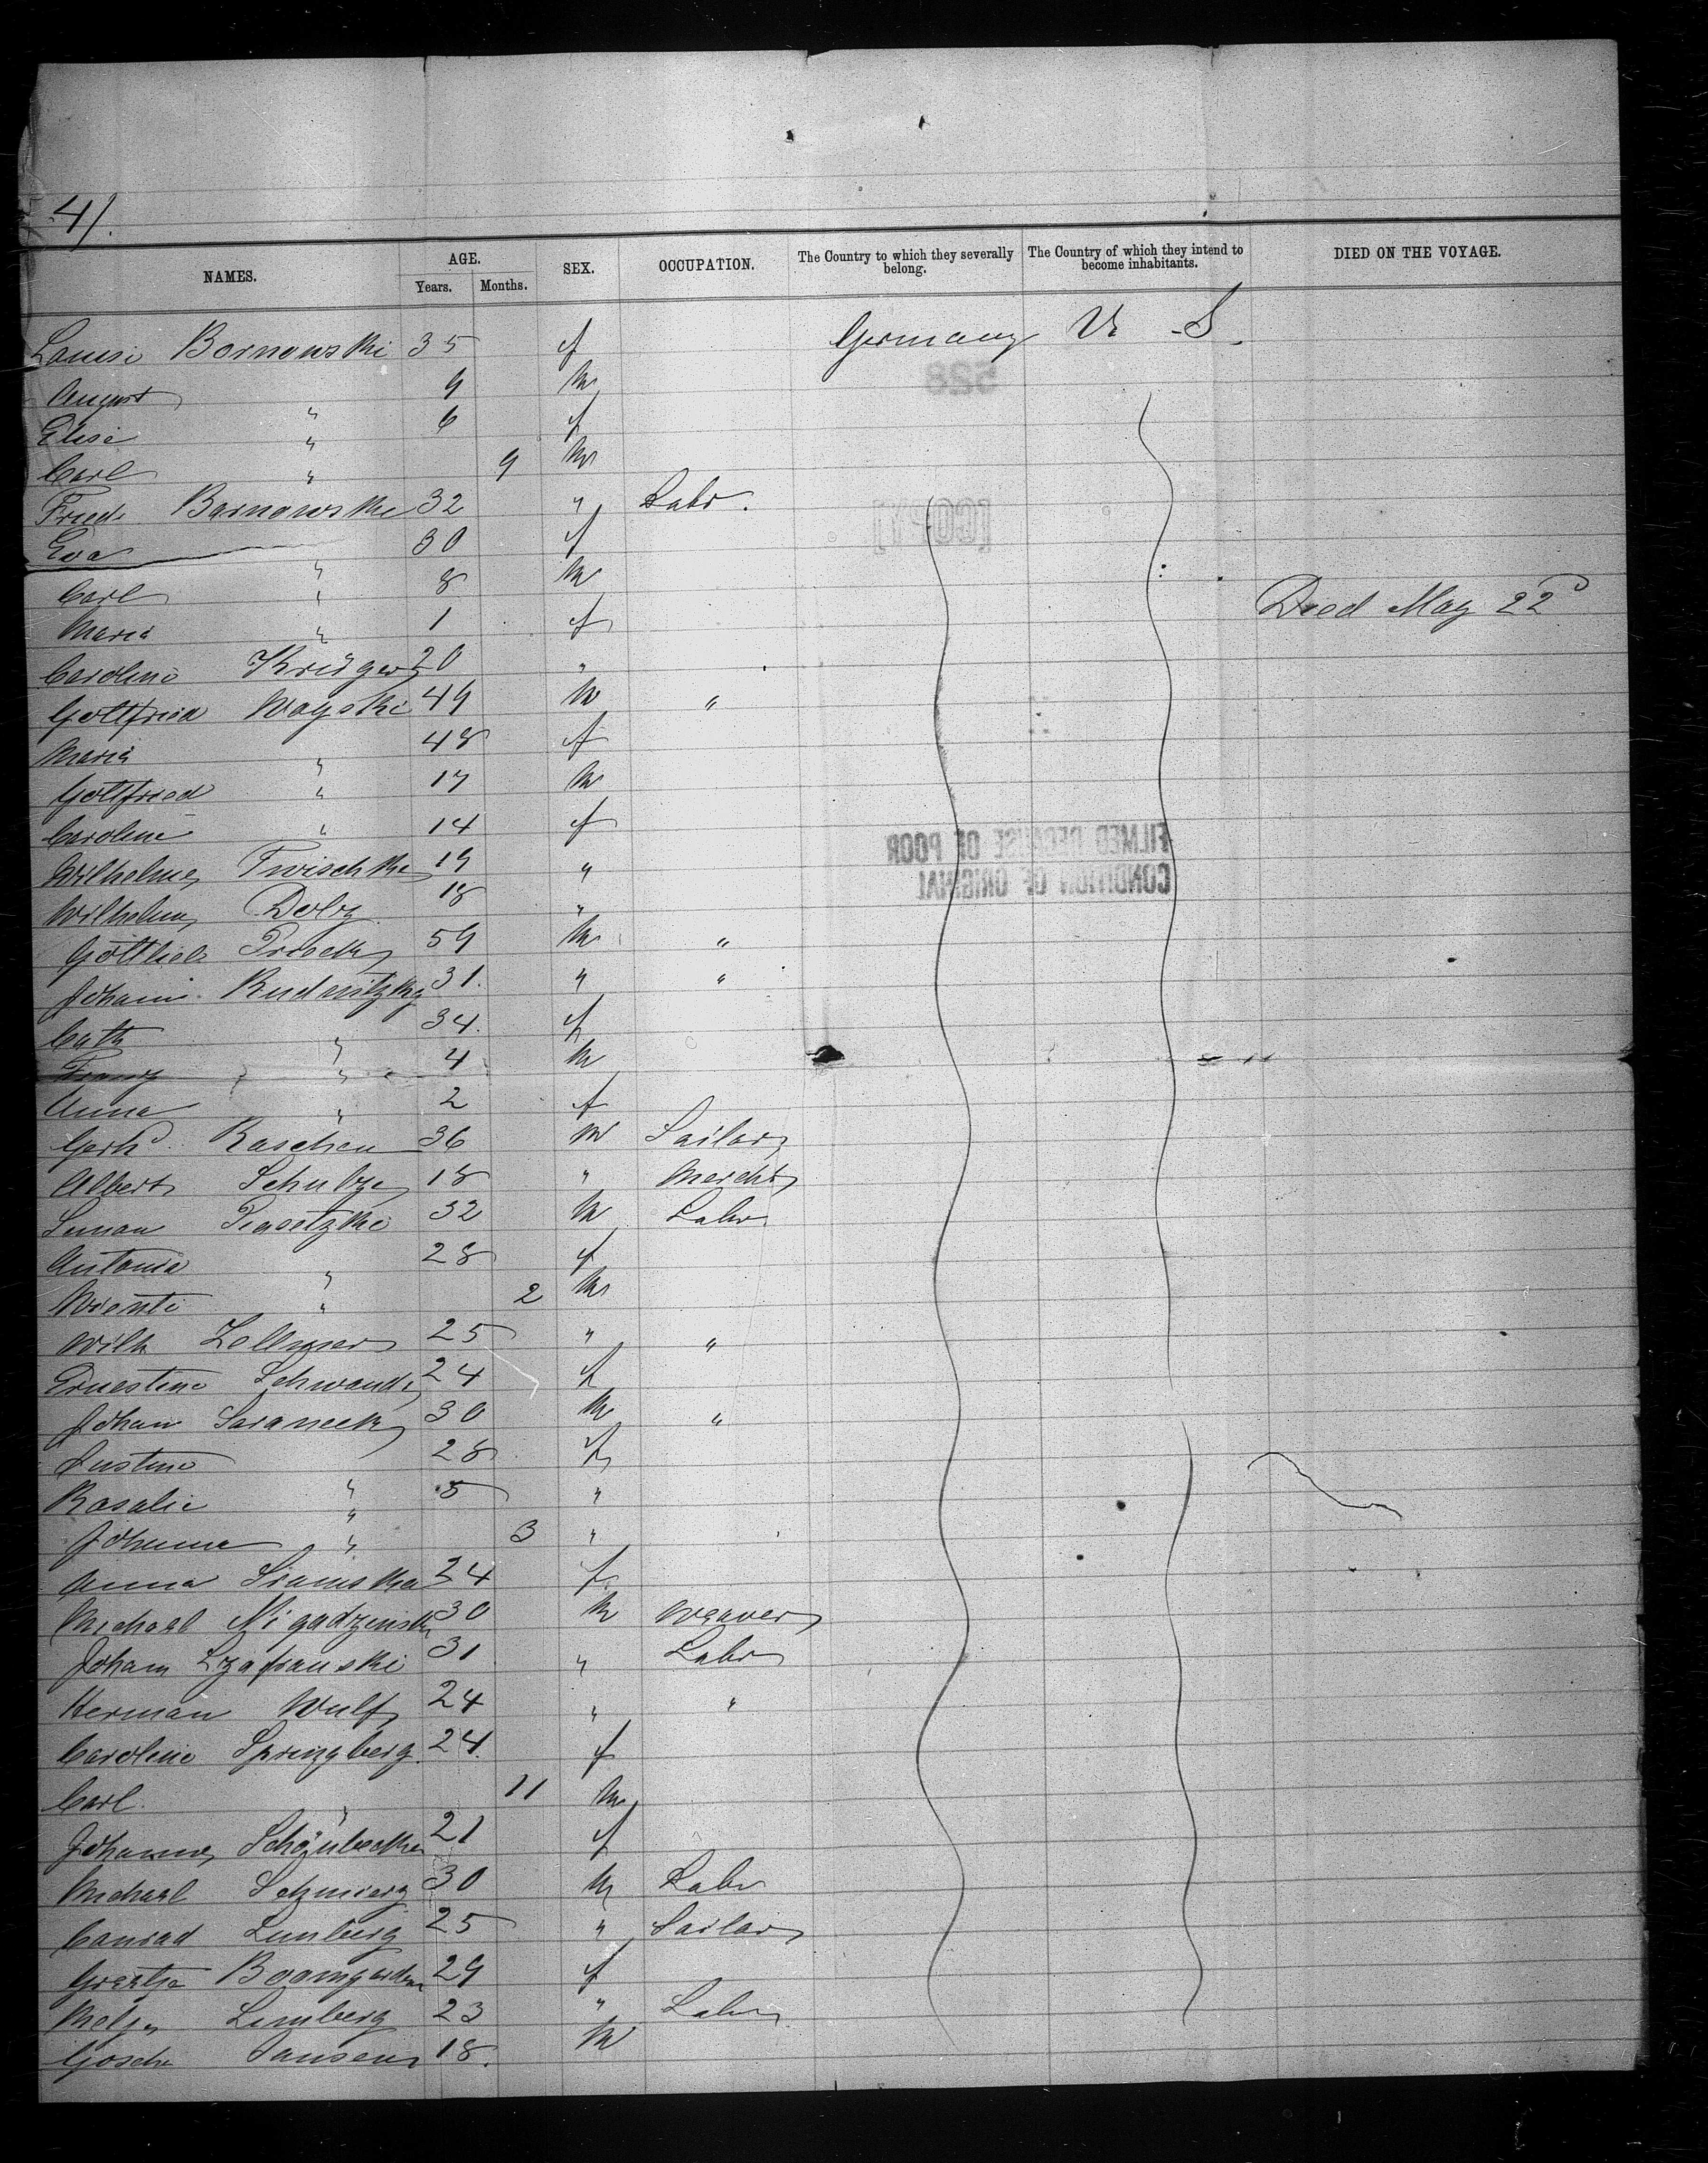 41.
NAMES. AGE. Years. Months. SEX. OCCUPATION. The Country to which they severally belong. The Country of which they intend to become inhabitants. DIED ON THE VOYAGE.
Louise Bornowski 35 f Germany U S.
August " 9 m
Elise " 6 f
Carl " 9 m
Fried. Barnowski 32 " Labr.
Eva " 30 f
Carl " 8 m
Maria " 1 f Died May 22d
Caroline Krüger 20 "
Gottfried Woyski 49 m "
Maria " 48 f
Gottfried " 17 m
Caroline " 14 f
Wilhelmi Twischke 19 "
Wilhelm 18 "
Gottlieb 59 m "
Johann Rudnitzky 31. " "
Cath " 34. f
Franz " 4 m
Anna " 2 f
Gerhd. Raschen 36 m Sailor
Albert Schulze 18 " Mercht
Piasetzki 32 m Labr.
Antonia " 28 f
" 2 m
Wilh Zellmer 25 " "
Ernestine Schwandt 24 f
Johann Saraneck 30 m "
Justine " 28 f
Rosalie " 5 "
Johanna " 3 "
Anna Sramska 24 f
Michael Nigadzinski 30 m Weaver
Johann 31 " Labr
Herman Wulf 24 " "
Caroline Springberg 24. f
Carl. " 11 m
Johanne Schönbecke 21 f
Michael 30 m Labr
Conrad Lunberg 25 " Sailor
Greetje Boomgarden 29 f
Limberg 23 " Labr
Gosche Jansen 18. m
528
[COPY]
FILMED BECAUSE OF POOR
CONDITION OF ORIGINAL